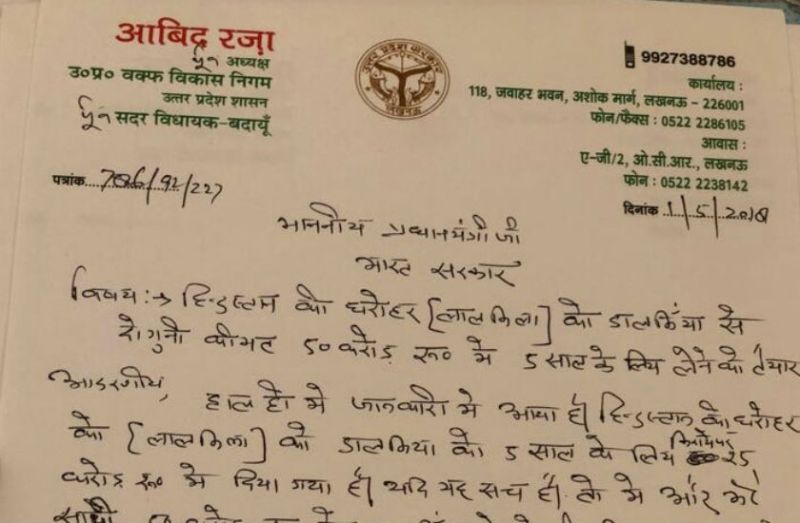 आबिद रजा
पूर्व अध्यक्ष
उ०प्र० वक्फ विकास निगम
उत्तर प्रदेश शासन
पूर्व सदर विधायक-बदायूँ
9927388786
कार्यालय :
118, जवाहर भवन, अशोक मार्ग, लखनऊ - 226001
फोन/फैक्स : 0522 2286105
आवास :
ए-जी/2, ओ.सी.आर., लखनऊ
फोन : 0522 2238142
पत्रांक
दिनांक 1/5/2018
माननीय प्रधानमंत्री जी
भारत सरकार
विषय :→ हिन्दुस्तान की धरोहर [लाल किला] को डालमिया से
दो गुनी कीमत 50 करोड़ रू० मे 5 साल के लिय लेने को तैयार
आदरणीय,
हाल ही मे जानकारी मे आया है| हिन्दुस्तान की धरोहर
की [लाल किला] को डालमिया को 5 साल के लिय 25
करोड़ रू० मे दिया गया है| यदि यह सच है| तो मे और मेरे
साथी